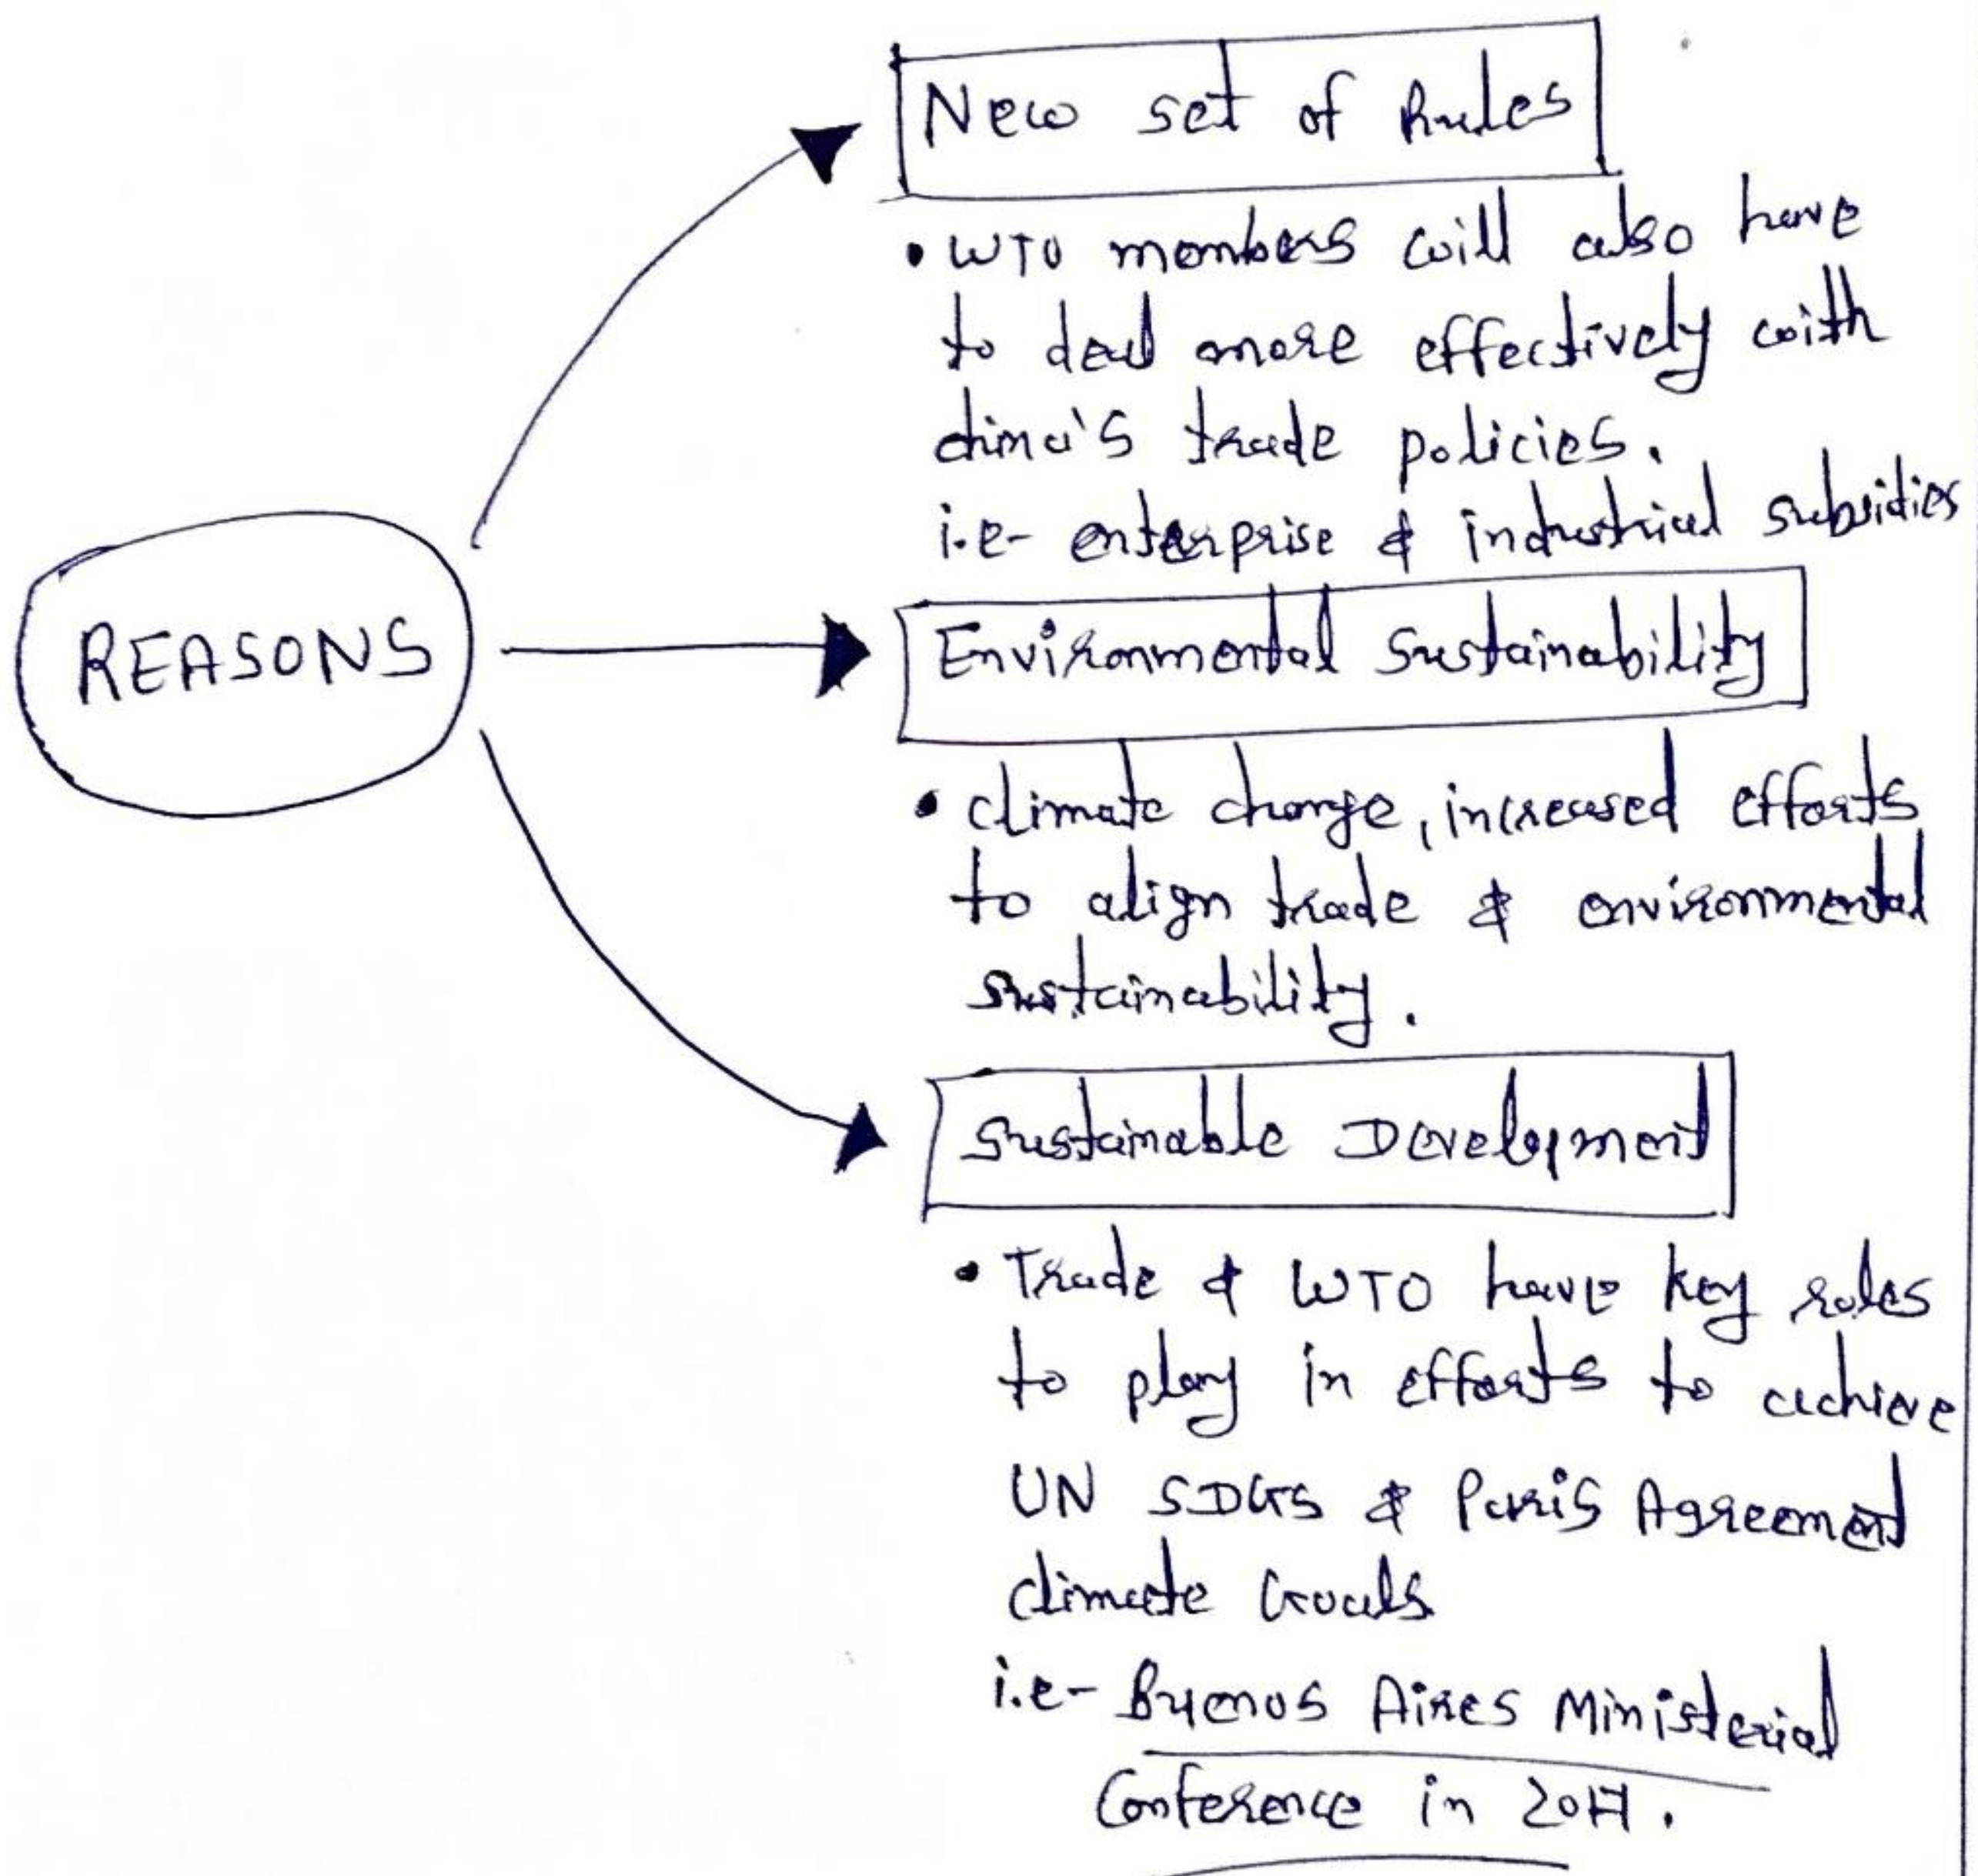 New set of Rules
• WTO members will also have
to deal more effectively with
china's trade policies.
i.e- enterprise & industrial subsidies
REASONS
Environmental Sustainability
• climate change, increased efforts
to align trade & environmental
sustainability.
Sustainable Development
• Trade & WTO have key roles
to play in efforts to achieve
UN SDGs & Paris Agreement
climate Goals
i.e- Buenos Aires Ministerial
Conference in 2017.